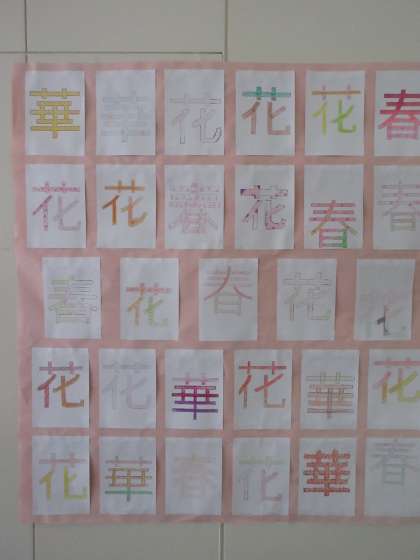 華 華 花 花 花 春
花 花 春 花 春 春
春 花 春 花 花
花 花 華 花 華 花
花 華 春 花 華 春